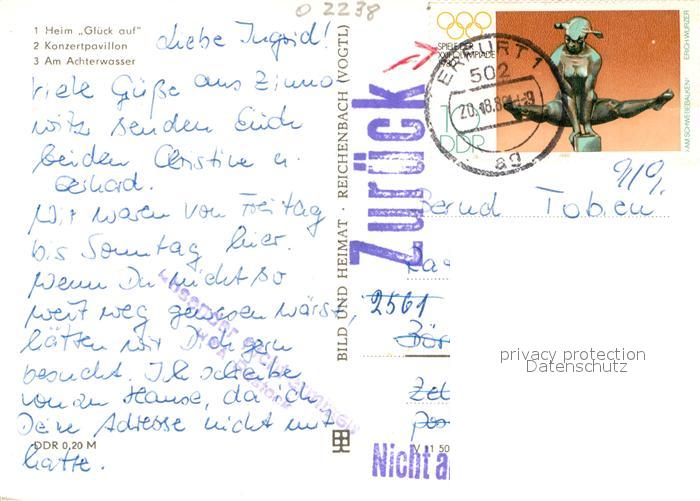 O 2238
1 Heim „Glück auf"
2 Konzertpavillon
3 Am Achterwasser
Liebe Ingrid!
viele Grüße aus Zinno
witz senden Euch
beiden Christine u.
Gerhard.
Wir waren von Freitag
bis Sonntag hier.
Wenn Du nicht so
weit weg gewesen wärst,
hätten wir Dich gern
besucht. Ich schreibe
von zu Hause, da ich
Deine Adresse nicht mit
hatte.
DDR 0,20 M
BILD UND HEIMAT · REICHENBACH (VOGTL)
Zurück
SPIELE DER
XXIV. OLYMPIADE
10
DDR
ERICH WURZER
„AM SCHWEBEBALKEN"
ERFURT 1
502
ag
9/9.
Bernd Tobien
2561
privacy protection
Datenschutz
Nicht a